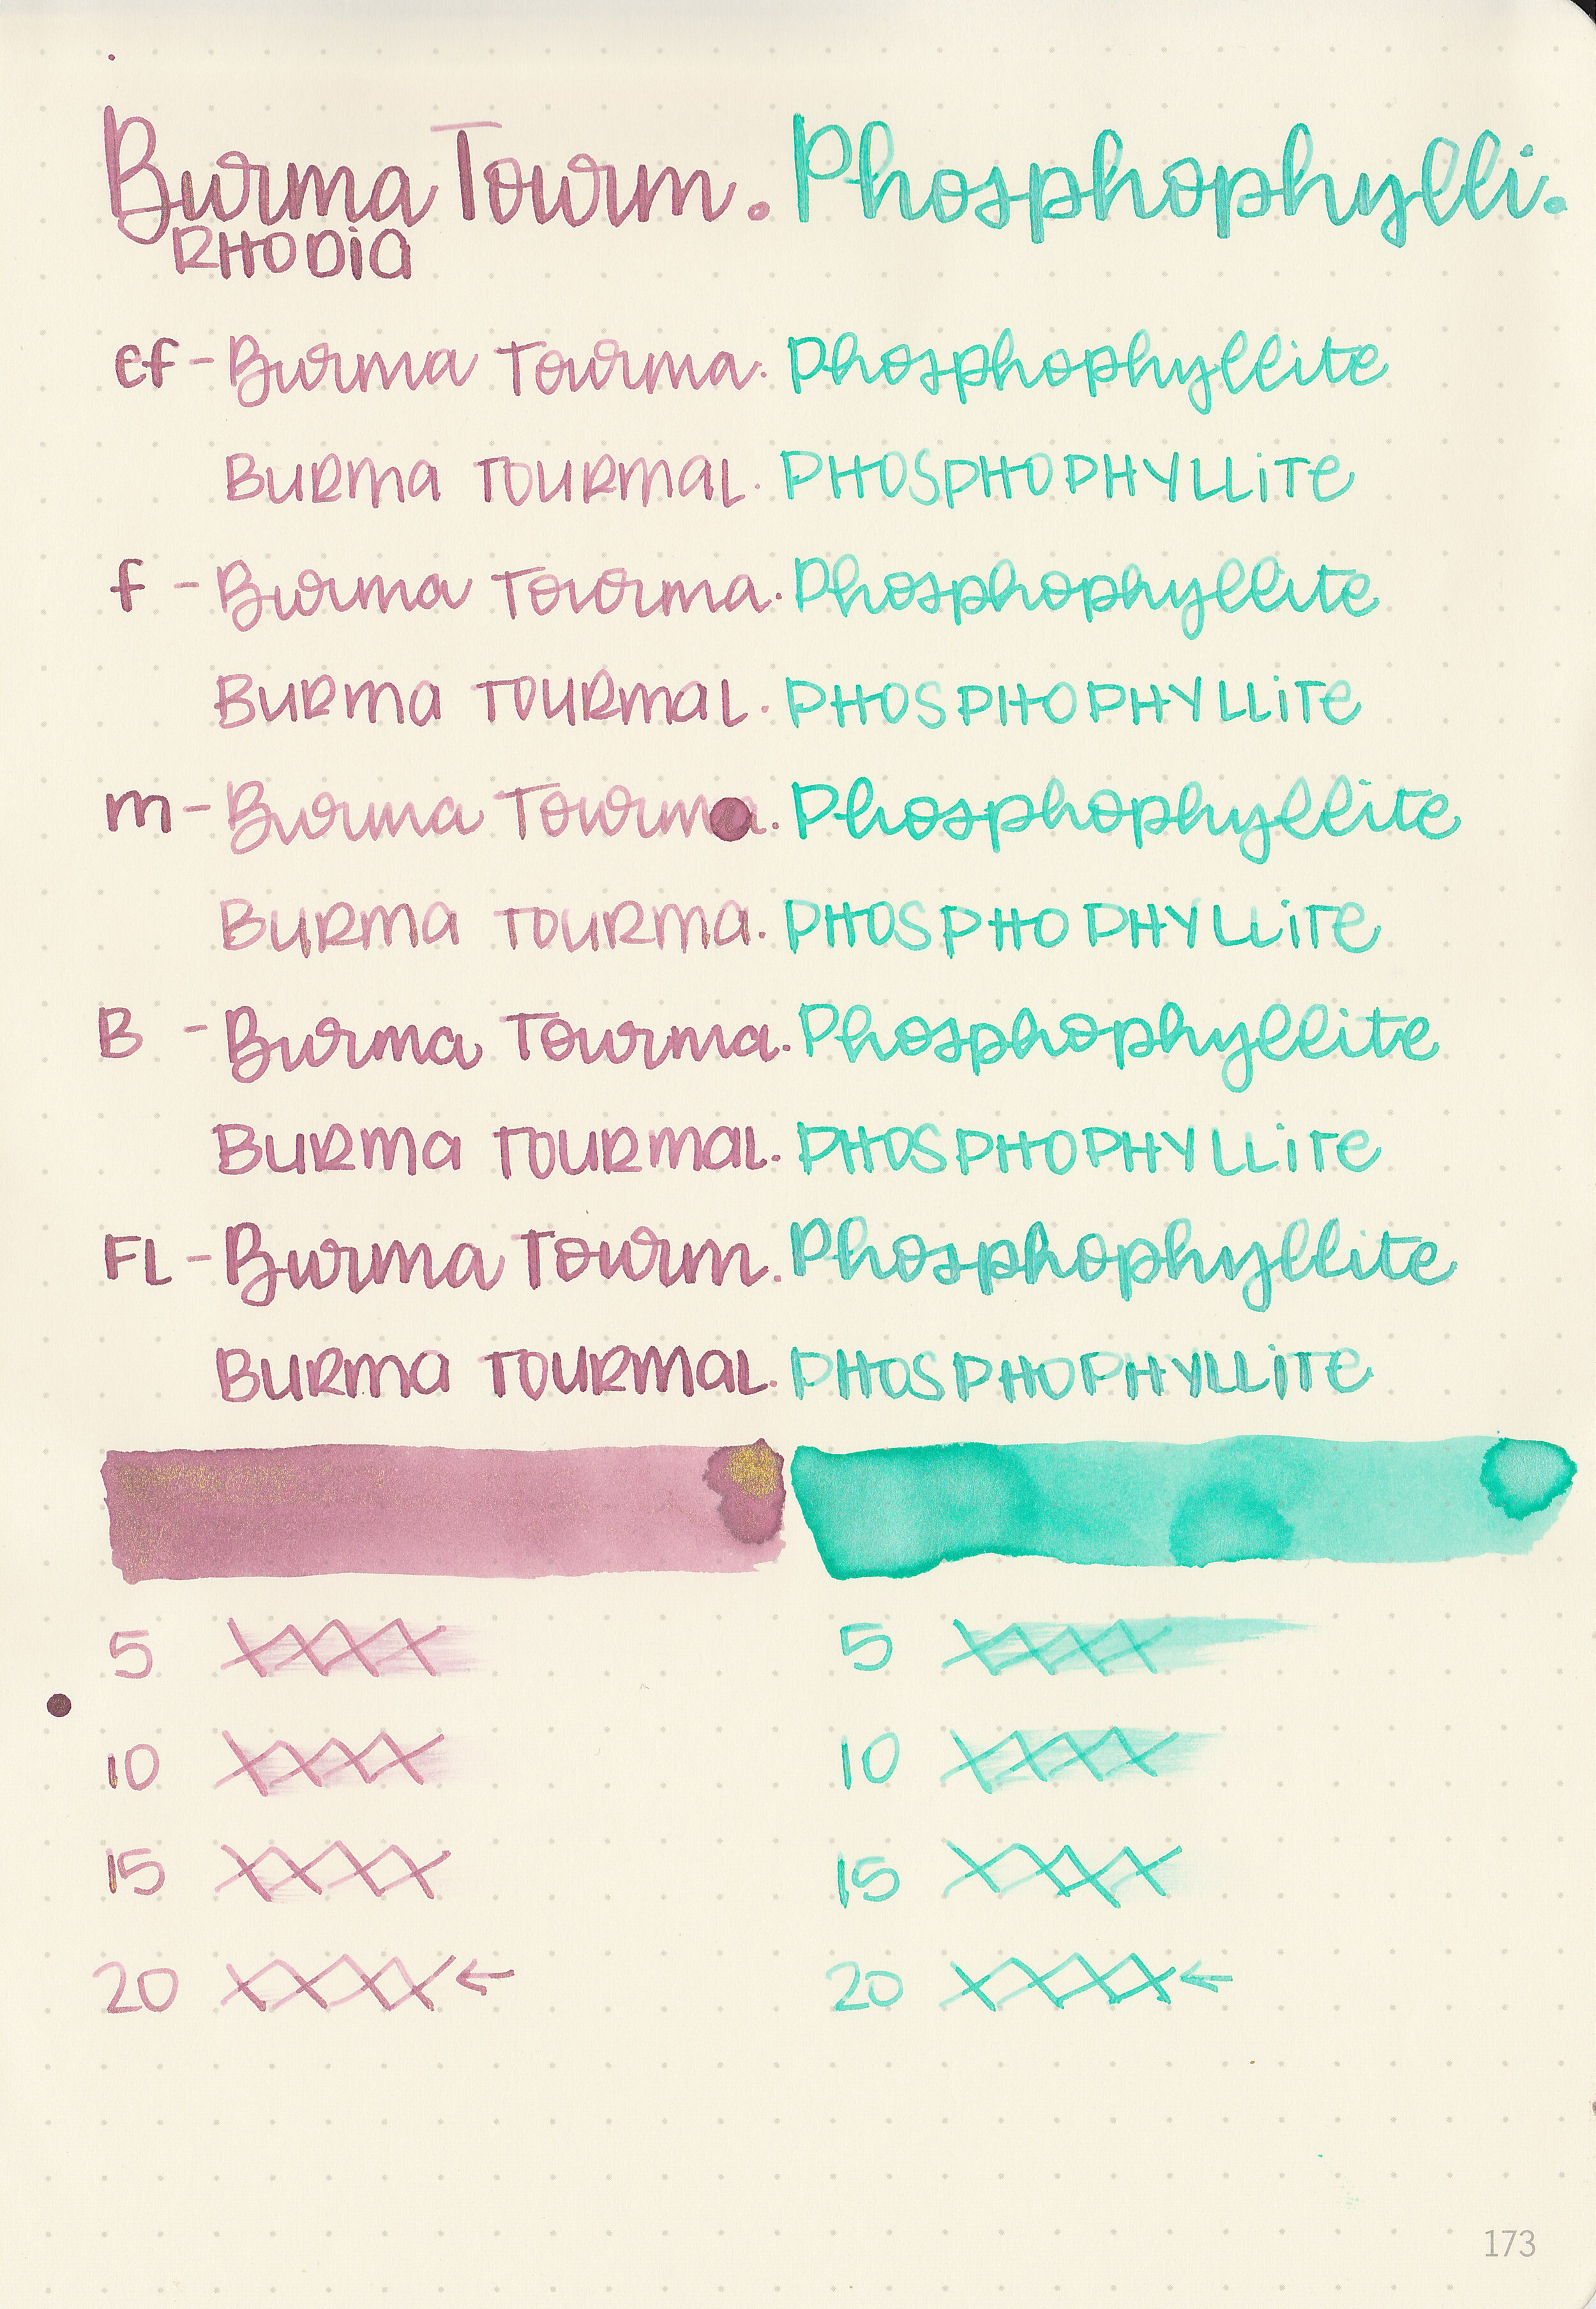 Burma Tourm. Phosphophylli.
RHODIA
ef - Burma Tourma. Phosphophyllite
BURMA TOURMAL. PHOSPHOPHYLLITE
f - Burma Tourma. Phosphophyllite
BURMA TOURMAL. PHOSPHOPHYLLITE
m - Burma Tourma. Phosphophyllite
BURMA TOURMA. PHOSPHOPHYLLITE
B - Burma Tourma. Phosphophyllite
BURMA TOURMAL. PHOSPHOPHYLLITE
FL - Burma Tourm. Phosphophyllite
BURMA TOURMAL. PHOSPHOPHYLLITE
5 XXXX 5 XXXX
10 XXXX 10 XXXX
15 XXXX 15 XXXX
20 XXXX ← 20 XXXX ←
173